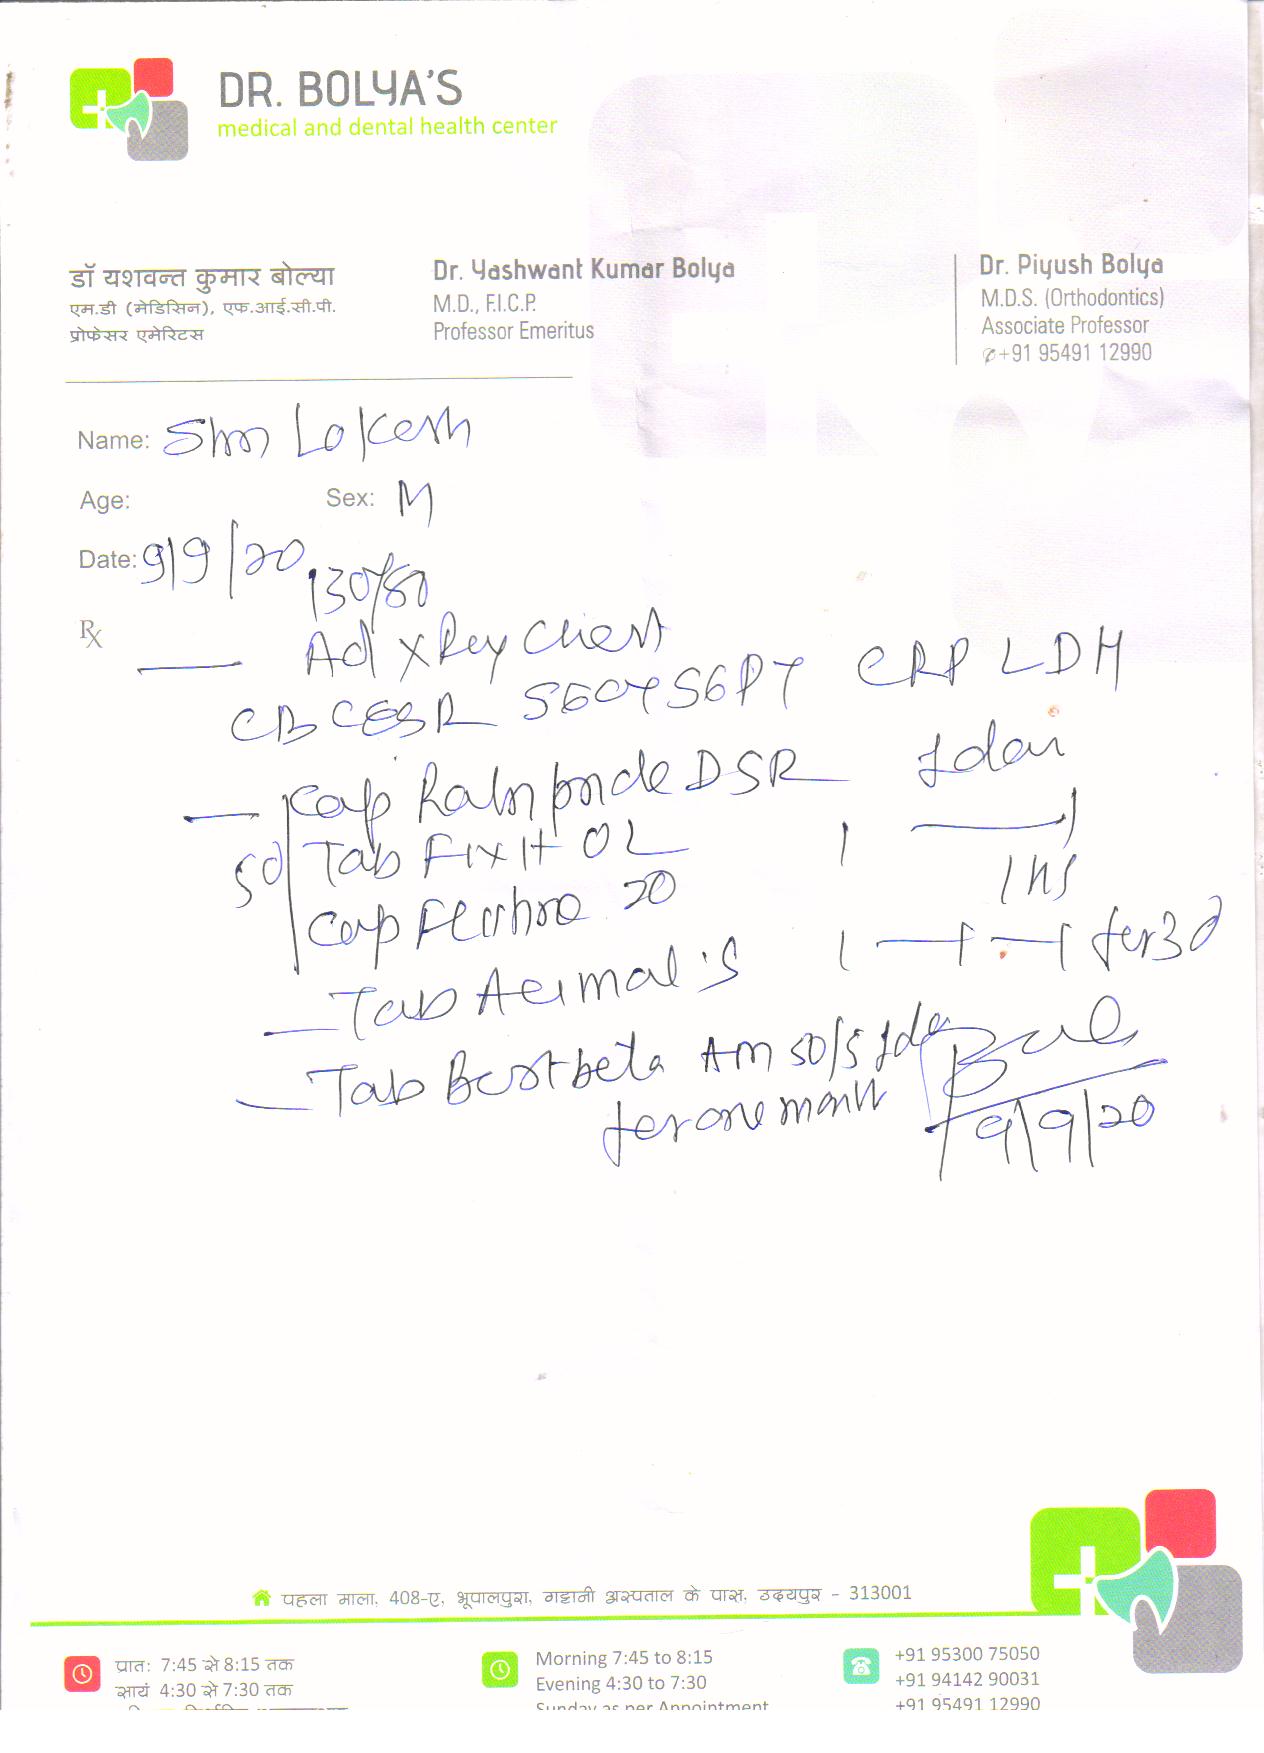 DR. BOLYA'S
medical and dental health center
डॉ यशवन्त कुमार बोल्या
एम.डी (मेडिसिन), एफ.आई.सी.पी.
प्रोफेसर एमेरिटस
Dr. Yashwant Kumar Bolya
M.D., F.I.C.P.
Professor Emeritus
Dr. Piyush Bolya
M.D.S. (Orthodontics)
Associate Professor
+91 95491 12990
Name: Lokesh
Age: Sex: M
Date: 9/9/20
130/80
Rx
Ad X Ray Chest
CBC ESR SGOT SGPT CRP LDH
Cap DSR
5d Tab Fixit OL 1
Cap 20 1 HS
Tab 1 1 1 for 3 d
Tab AM 50/5
for one month
9/9/20
पहला माला, 408-ए, भूपालपुरा, गट्टानी अस्पताल के पास, उदयपुर - 313001
प्रातः 7:45 से 8:15 तक
सायं 4:30 से 7:30 तक
Morning 7:45 to 8:15
Evening 4:30 to 7:30
Sunday as per Appointment
+91 95300 75050
+91 94142 90031
+91 95491 12990